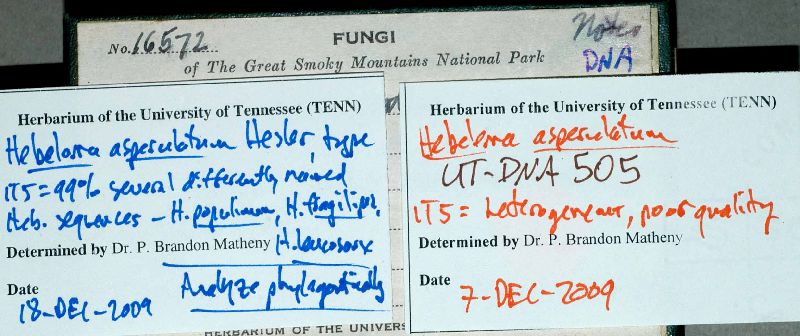 No. 16572 FUNGI Notes
of The Great Smoky Mountains National Park DNA
Herbarium of the University of Tennessee (TENN)
Hebeloma asperulatum Hesler, type
ITS = 99% several differently named
Heb. sequences – H. populinum, H. fragilipes,
Determined by Dr. P. Brandon Matheny H. leucosarx
Date
18-DEC-2009 Analyze phylogenetically
Herbarium of the University of Tennessee (TENN)
Hebeloma asperulatum
UT-DNA 505
ITS = heterogeneous, poor quality
Determined by Dr. P. Brandon Matheny
Date
7-DEC-2009
HERBARIUM OF THE UNIVERS